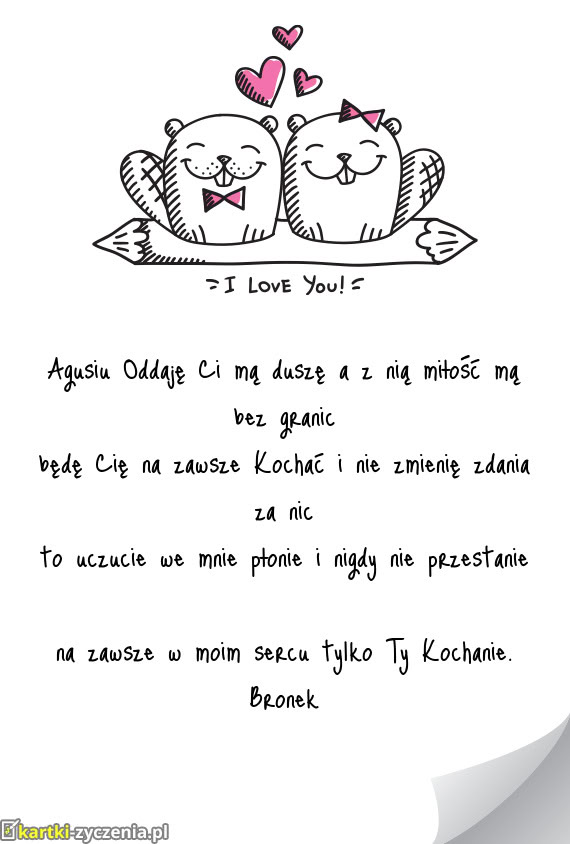 I LOVE YOU!
Agusiu Oddaję Ci mą duszę a z nią miłość mą
bez granic
będę Cię na zawsze Kochać i nie zmienię zdania
za nic
to uczucie we mnie płonie i nigdy nie przestanie
na zawsze w moim sercu tylko Ty Kochanie.
Bronek
kartki-zyczenia.pl